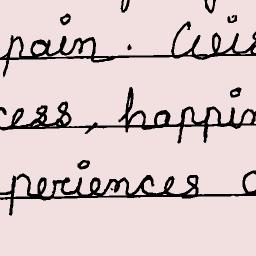 pain.
cess, happin
periences